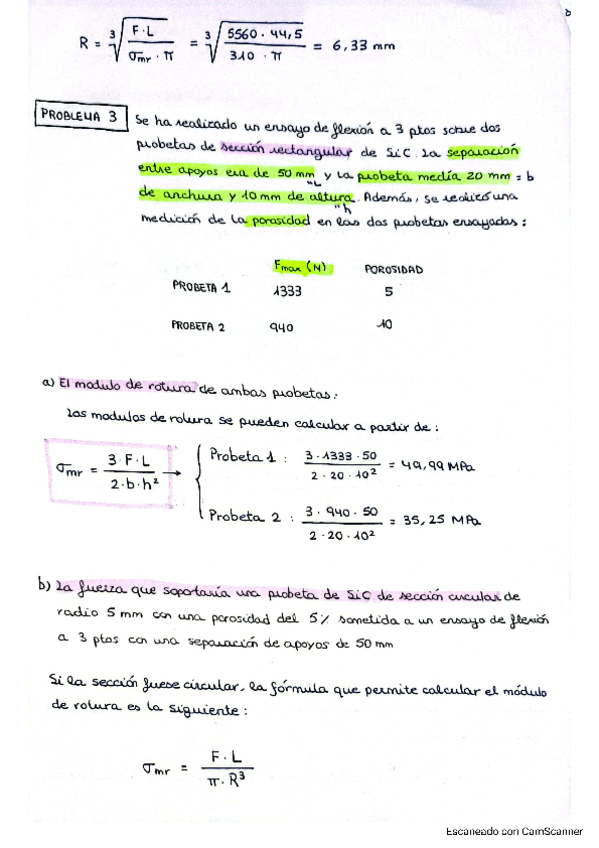 R = ∛(F·L / (σmr · π)) = ∛(5560 · 44,5 / (310 · π)) = 6,33 mm
PROBLEMA 3 Se ha realizado un ensayo de flexión a 3 ptos sobre dos
probetas de sección rectangular de SiC. La separación
entre apoyos era de 50 mm y la probeta medía 20 mm = b
"L
de anchura y 10 mm de altura. Además, se realizó una
"h
medición de la porosidad en las dos probetas ensayadas:
Fmax (N) POROSIDAD
PROBETA 1 1333 5
PROBETA 2 940 10
a) El modulo de rotura de ambas probetas:
Los modulos de rotura se pueden calcular a partir de:
σmr = 3·F·L / (2·b·h²) → { Probeta 1 : 3·1333·50 / (2·20·10²) = 49,99 MPa
Probeta 2 : 3·940·50 / (2·20·10²) = 35,25 MPa
b) La fuerza que soportaría una probeta de SiC de sección circular de
radio 5 mm con una porosidad del 5% sometida a un ensayo de flexión
a 3 ptos con una separación de apoyos de 50 mm
Si la sección fuese circular, la fórmula que permite calcular el módulo
de rotura es la siguiente:
σmr = F·L / (π·R³)
Escaneado con CamScanner